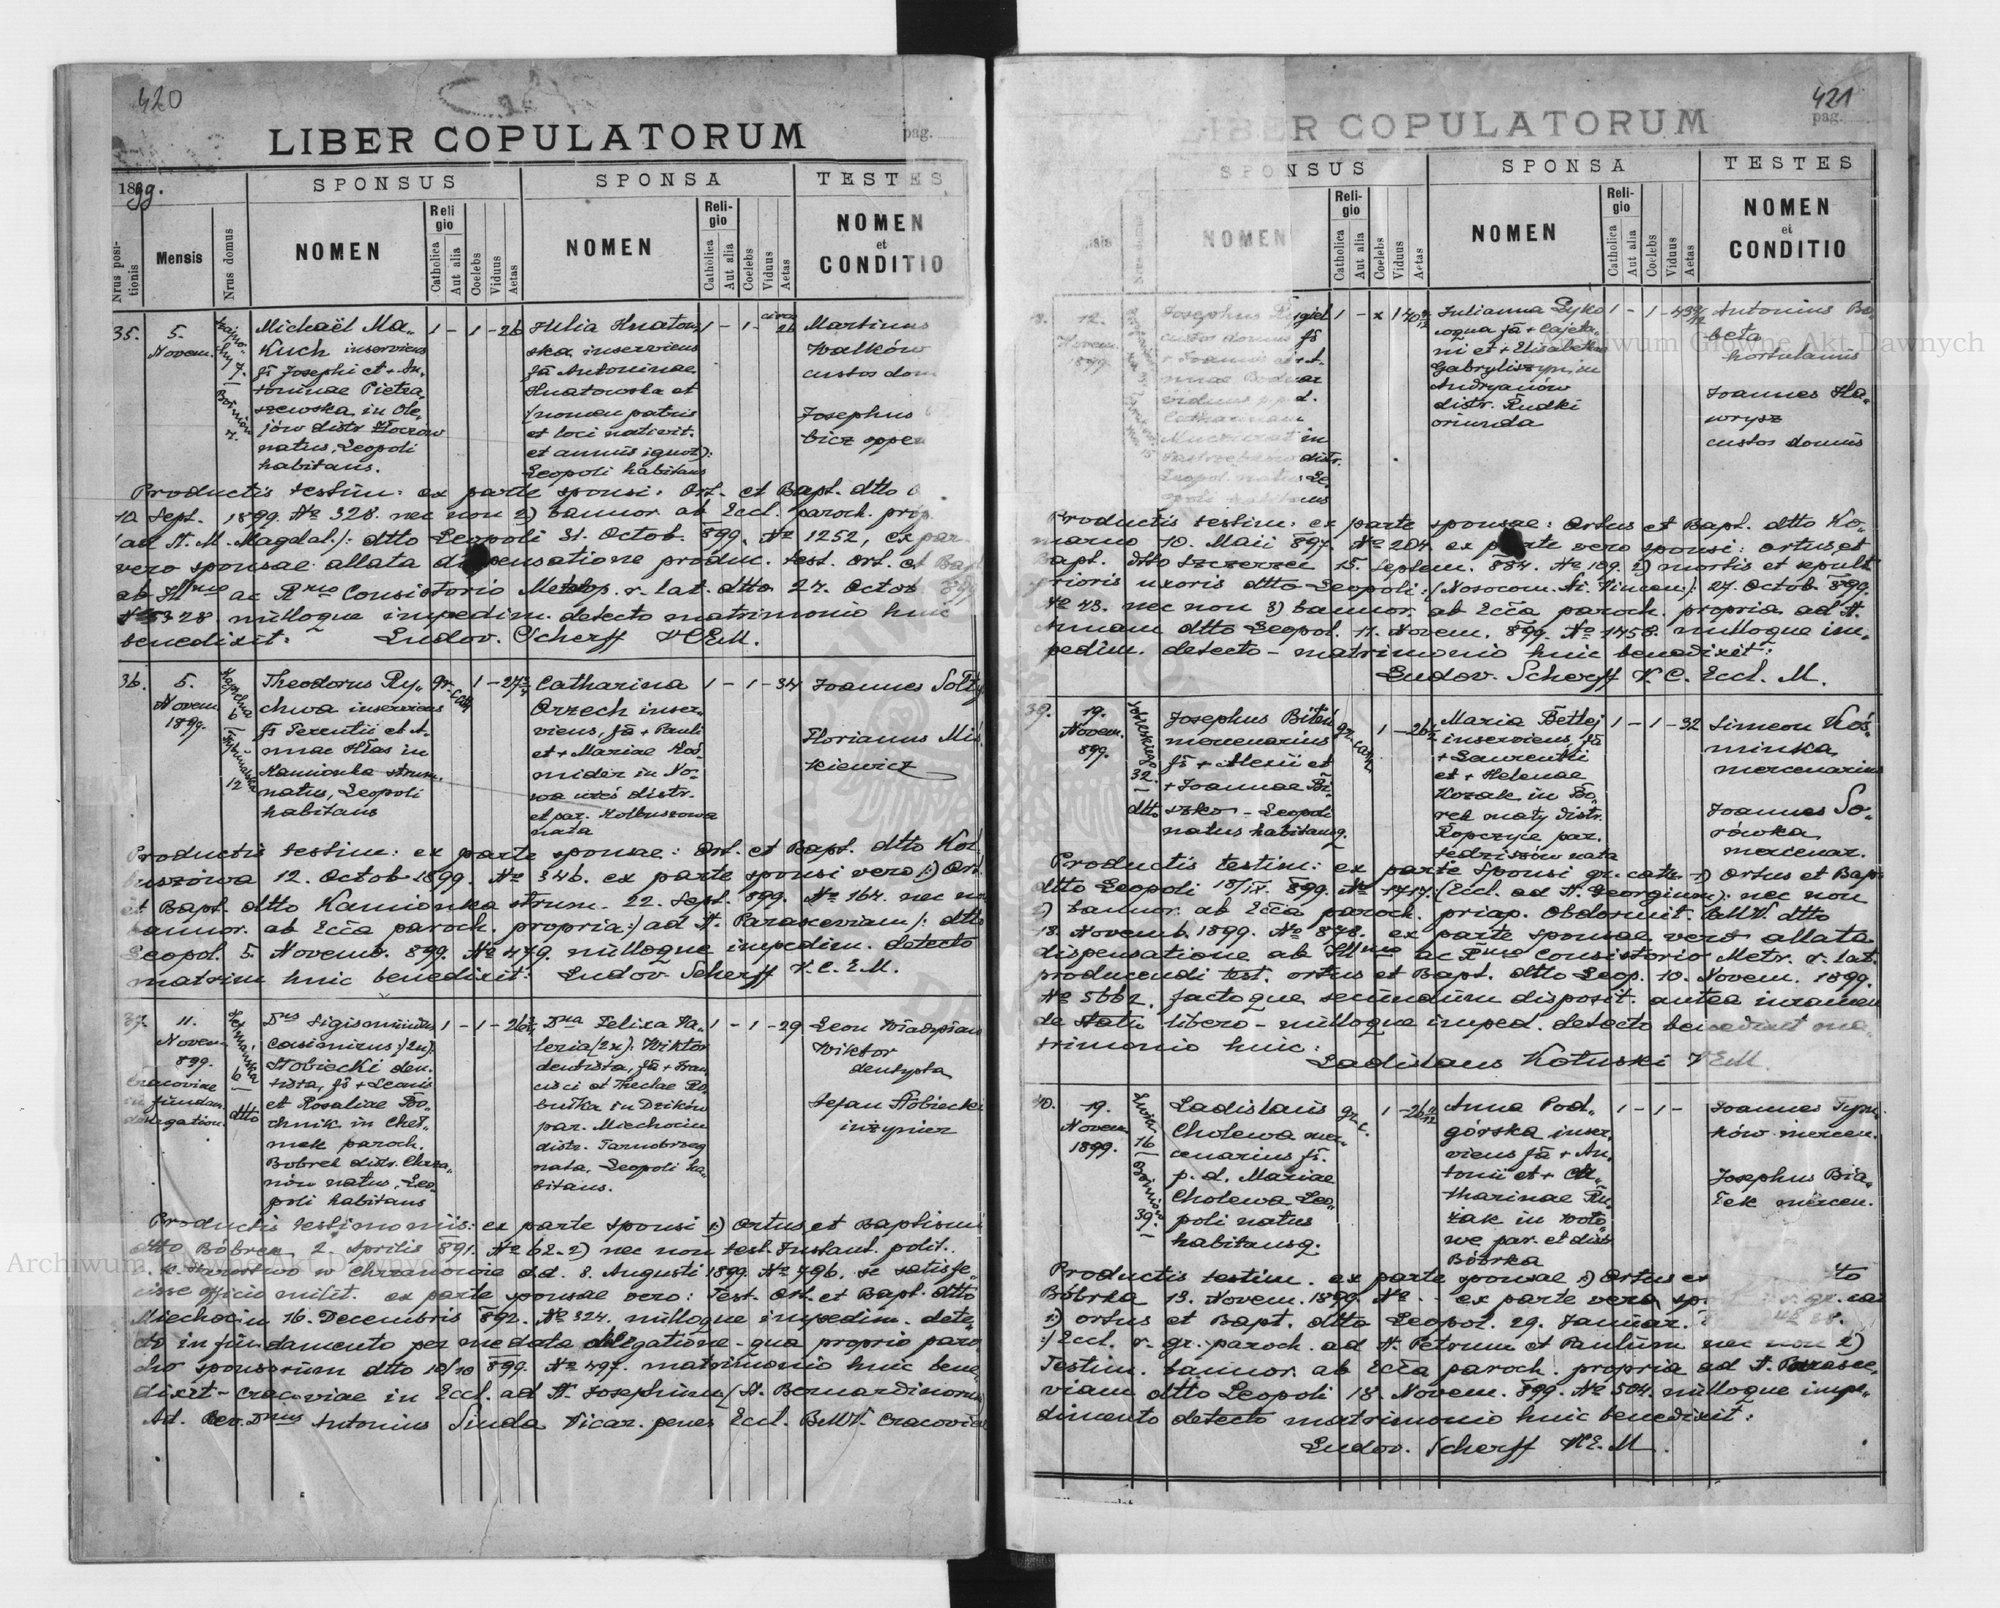 420
LIBER COPULATORUM
pag.
1899.
SPONSUS
SPONSA
TESTES
Nrus positionis
Mensis
Nrus domus
NOMEN
Religio
Catholica
Aut alia
Coelebs
Viduus
Aetas
NOMEN
Religio
Catholica
Aut alia
Coelebs
Viduus
Aetas
NOMEN
et
CONDITIO
35.
5.
Novem.
Michaël Ma„
Kuch inserviens
fs Josephi et + An„
toninae Pietra„
szewska in Ole„
jów distr Złoczow
natus, Leopoli
habitans.
1 - 1 - 26
Julia Hnatow„
ska inserviens
fa Antoninae
Hnatowska et
(nomen patris
et loci nativit.
et annus ignot):
Leopoli habitans
1 - 1 -
circa
26
Martinus
Walków
custos dom
Josephus
bicz oppen
Productis testim: ex parte sponsi: Ort. et Bapt. dtto
10 Sept. 1899. № 328. nec non 2) bannor. ab Eccl. paroch. prop.
(ad St. M. Magdal.): dtto Leopoli 31. Octob. 899. № 1252, ex par
vero sponsae allata dispensatione produc. test. ort. et Bapt
ab Illmo ac Rmo Consistorio Metrop. r. lat. dtto 27. Octob 899
№ 5328. nulloque impedim. detecto matrimonio huic
benedixit: Ludov. Scherff VCEM.
36.
5.
Novem.
1899.
Theodorus Ry„
chwa inserviens
fs Terentii et A„
nnae Hłas in
Kamionka strum.
natus, Leopoli
habitans
gr. cath
1 - 27
Catharina
Orzech inser„
viens, fa + Pauli
et + Mariae Koś„
mider in No„
wa wieś distr.
et par. Kolbuszowa
nata
1 - 1 - 34
Joannes Sołty
Florianus Miś„
kiewicz
Productis testim: ex parte sponsae: Ort. et Bapt. dtto Kol„
buszowa 12. Octob. 1899. № 346. ex parte sponsi vero 1.) Ort.
et Bapt. dtto Kamionka strum. 22. Sept. 899. № 164. nec non
bannor. ab Eccla paroch. propria:) ad St. Parasceviam): dtto
Leopol. 5. Novemb. 899. № 479. nulloque impedim. detecto
matrim huic benedixit: Ludov. Scherff V.C.E.M.
37.
11.
Novem.
899.
Cracoviae
in fundam.
delegation.
6
dtto
Dnus Sigismundus
Casimirus (2n):
Stobiecki den„
tista, fs + Leonis
et Rosaliae Bo„
chnik in Cheł„
mek paroch.
Bobrek distr. Chrza„
nów natus, Leo„
poli habitans
1 - 1 - 26
Dna Felixa Va„
leria (2x): Wiktor
dentista, fa + Fran„
cisci et Theclae Ro„
butka in Dzików
par. Miechocin
distr. Tarnobrzeg
nata, Leopoli ha„
bitans.
1 - 1 - 29
Leon Władysław
Wiktor
dentysta
Stefan Stobiecki
inżynier
Productis testimoniis: ex parte sponsi 1.) Ortus et Baptismi
dtto Bobrek 2. Aprilis 891. № 62. 2) nec non test. Instant. polit.
Starostwo w Chrzanowie dd. 8. Augusti 1899. № 796. se satisfe„
cisse officio milit. ex parte sponsae vero: Test. Ort. et Bapt. dtto
Miechocin 16. Decembris 892. № 324. nulloque impedim. dete„
cto in fundamento per me data delegatione - qua proprio paro
cho sponsorum dtto 10/10 899. № 497. matrimonio huic bene„
dixit - Cracoviae in Eccl. ad St. Josephum (St. Bernardinorum)
Ad. Rev. Dnus Antonius Siuda Vicar. penes Eccl. BMV. Cracoviae
421
pag.
LIBER COPULATORUM
SPONSUS
SPONSA
TESTES
NOMEN
Religio
Catholica
Aut alia
Coelebs
Viduus
Aetas
NOMEN
Religio
Catholica
Aut alia
Coelebs
Viduus
Aetas
NOMEN
et
CONDITIO
12.
Novem.
1899.
Josephus Rugiel
custos domus fs
+ Joannis et + A„
nnae Bodnar
viduus p.p.d.
Catharinam
in
distr.
Leopol. natus Le„
opoli habitans
1 - x 1 40
Julianna Łyko„
wqua fa + Cajeta„
ni et + Elisabethae
Gabryliszyn, in
Andryanów
distr. Rudki
oriunda
1 - 1 - 43
Antonius Bo„
beta
hortulanus
Joannes Ha„
wrysz
custos domus
Productis testim: ex parte sponsae: Ortus et Bapt. dtto Ko„
marno 10. Maii 897. № 204. ex parte vero sponsi: ortus et
Bapt. dtto Szczerzec 15. Septem. 884. № 109. 2) mortis et sepult
prioris uxoris dtto Leopoli: (Nosocom. St. Vincen): 27. Octob. 899.
№ 43. nec non 3) bannor. ab Eccla paroch. propria ad St.
Annam dtto Leopol. 11. Novem. 899. № 1458. nulloque im„
pedim. detecto - matrimonio huic benedixit:
Ludov. Scherff V. C. Eccl. M.
39.
19.
Novem.
899.
32.
dtto
Josephus Biteń
mercenarius
fs + Alexii et
+ Joannae Bi„
szko - Leopoli
natus habitansq.
gr. cath
1 - 26
Maria Betlej
inserviens fa
+ Laurentii
et + Helenae
Kozak in Bo„
rek mały distr.
Ropczyce par.
Sędziszów nata
1 - 1 - 32
Simeon Koś„
minka
mercenarius
Joannes So„
rówka
mercenar.
Productis testim: ex parte Sponsi gr. cath. 1) Ortus et Bapt
dtto Leopoli 18/IX. 899. № 1717. (Eccl. ad St. Georgium): nec non
2) bannor. ab Eccla paroch. priap. Obdormit. BMV. dtto
18. Novemb. 1899. № 878. ex parte sponsae vero allata
dispensatione ab Illmo ac Rmo Consistorio Metr. r. lat.
producendi test. ortus et Bapt. dtto Leop. 10. Novem. 1899.
№ 5662, factoque secundum disposit. antea iuramen
de statu libero - nulloque imped. detecto benedixit ma„
trimonio huic:
Ladislaus Kotuski VEM.
40.
19.
Novem.
1899.
16
39.
Ladislaus
Cholewa mer„
cenarius fs.
p. d. Mariae
Cholewa Leo„
poli natus
habitansq.
gr. c.
1 - 26
Anna Pod„
górska inser„
viens fa + An„
tonii et + Ca„
tharinae Ru„
żak in Woło„
we par. et distr
Bóbrka
1 - 1 -
Joannes Tym„
ków mercen.
Josephus Bia„
łek mercen.
Productis testim. ex parte sponsae 1.) Ortus et dtto
Bóbrka 13. Novem. 1899. № ex parte vero sponsi r. gr. cat
1.) ortus et Bapt. dtto Leopol. 29. Januar.
:) Eccl. r. gr. paroch. ad St. Petrum et Paulum nec non 2)
Testim. bannor. ab Eccla paroch. propria ad St. Parasce„
viam dtto Leopoli 18. Novem. 899. № 504. nulloque impe„
dimento detecto matrimonio huic benedixit:
Ludov. Scherff VCE.M.
Archiwum Główne Akt Dawnych
Archiwum Główne Akt Dawnych